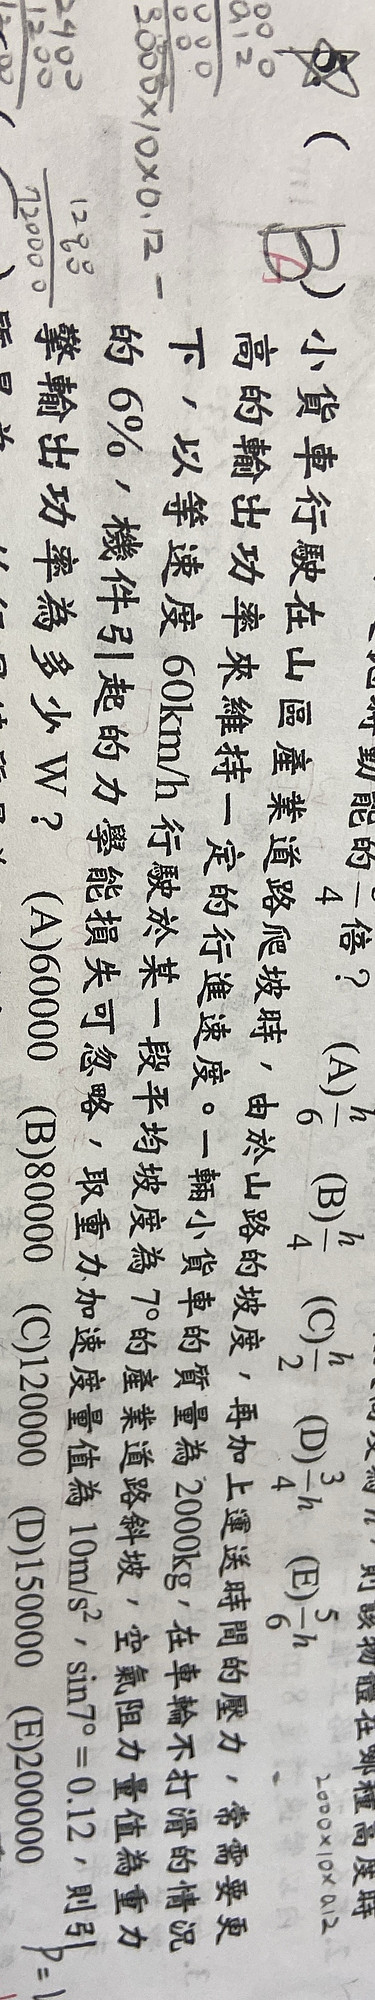 倍？ (A)h/6 (B)h/4 (C)h/2 (D)3/4h (E)5/6h
2000×10×0.12
5. ( B ) 小貨車行駛在山區產業道路爬坡時，由於山路的坡度，再加上運送時間的壓力，常需要更
高的輸出功率來維持一定的行進速度。一輛小貨車的質量為 2000kg，在車輪不打滑的情況
下，以等速度 60km/h 行駛於某一段平均坡度為 7°的產業道路斜坡，空氣阻力量值為重力
的 6%，機件引起的力學能損失可忽略，取重力加速度量值為 10m/s²，sin7°＝0.12，則引
擎輸出功率為多少 W？ (A)60000 (B)80000 (C)120000 (D)150000 (E)200000
2000×10×0.12 −
2400
1200
P=